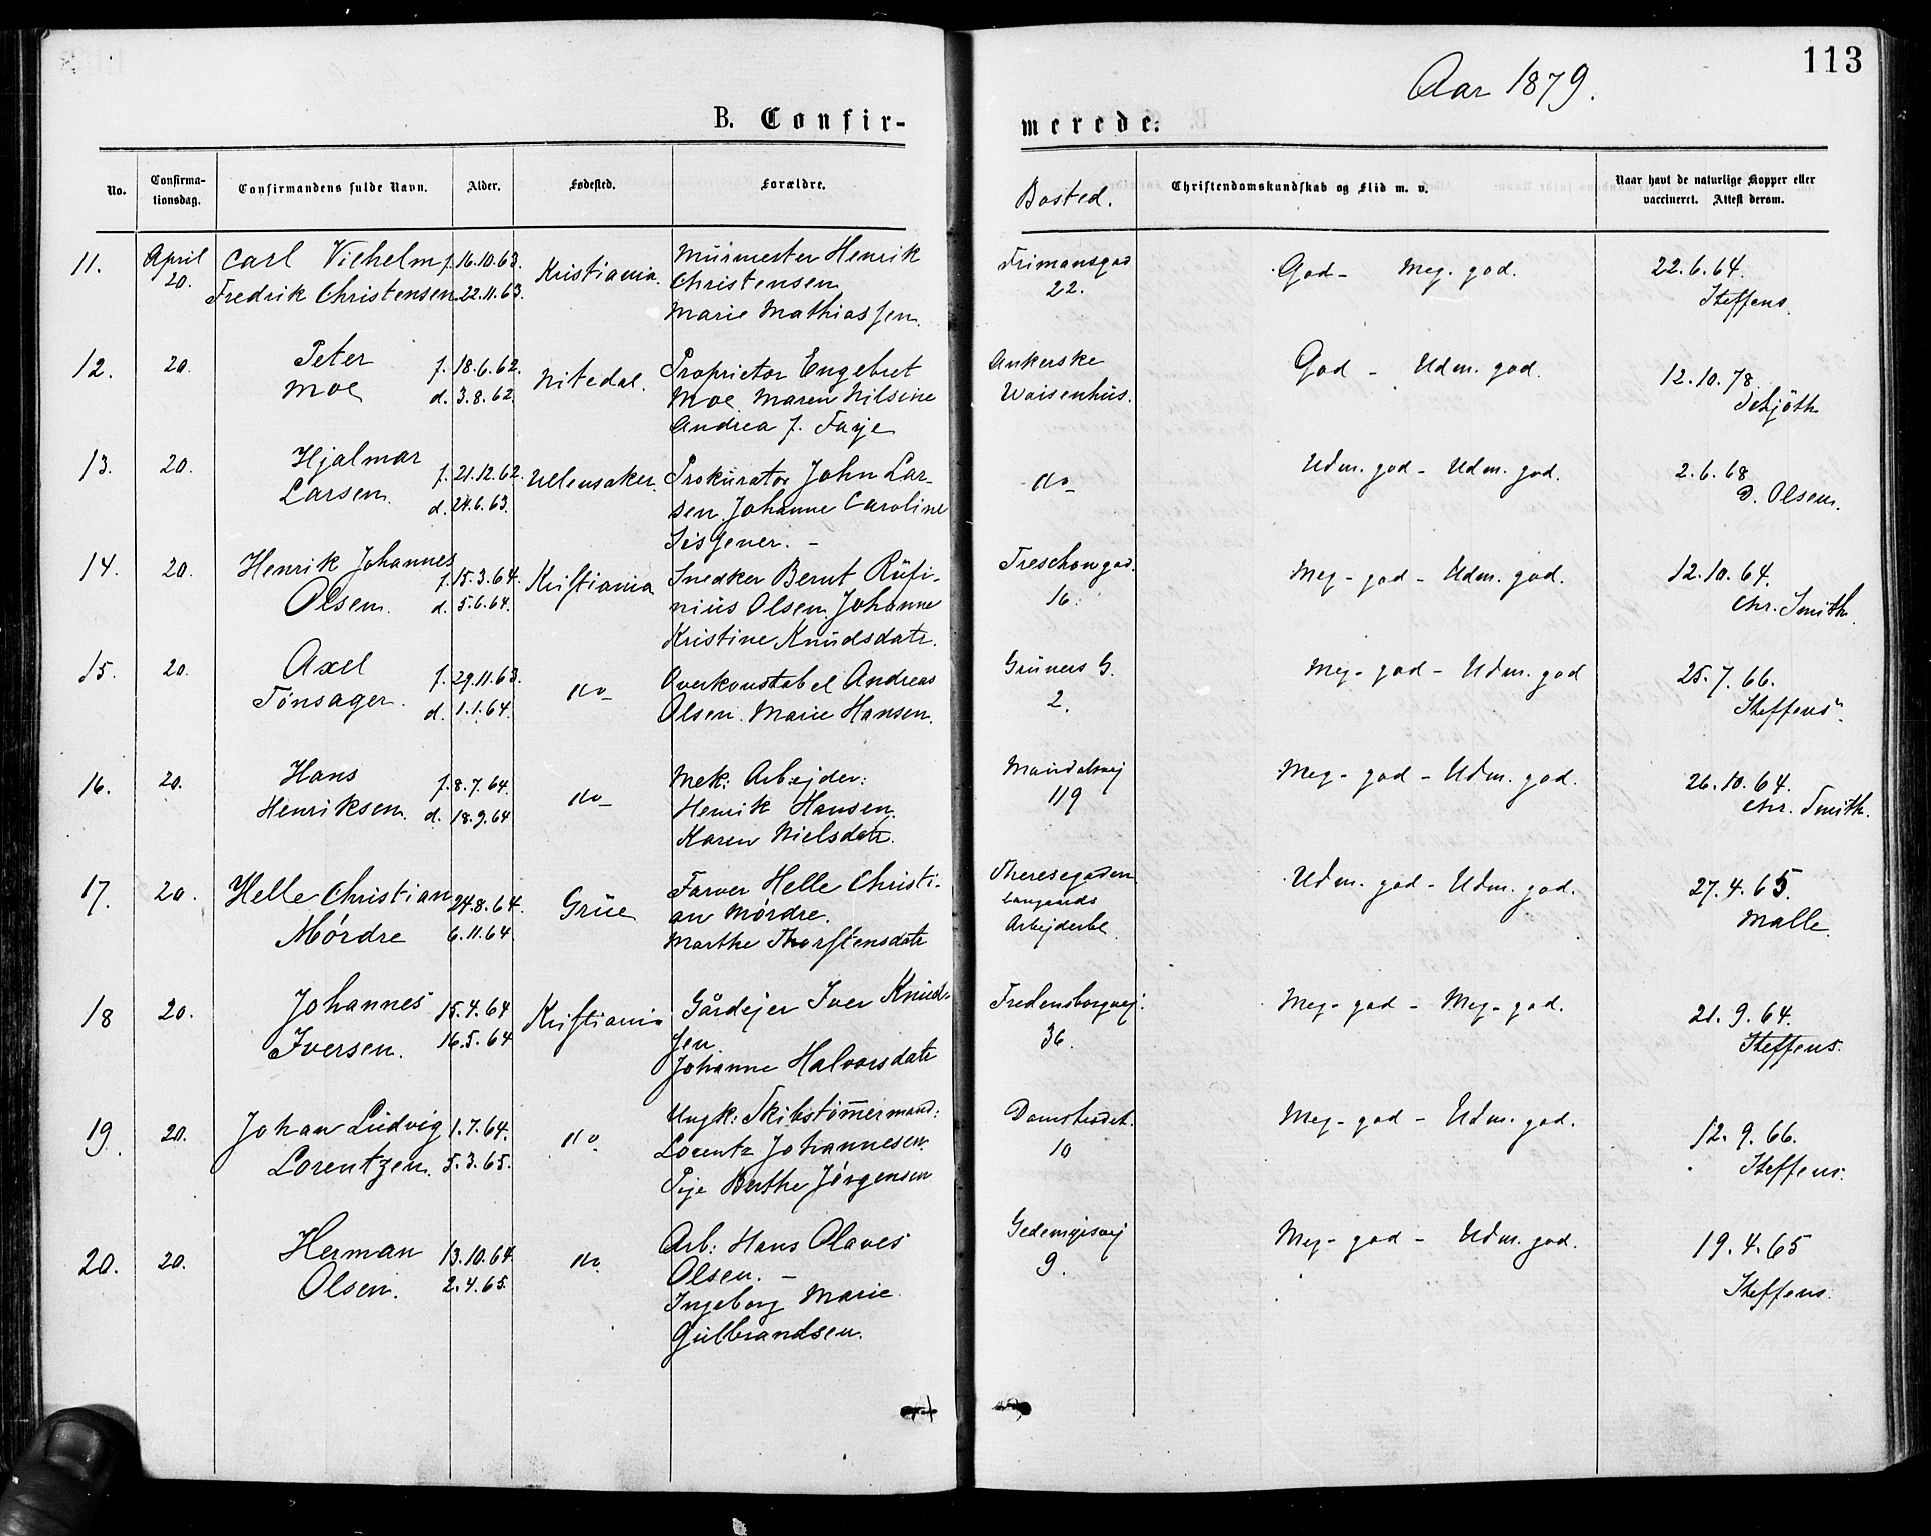 113
Aar 1879.
B. Confir-
merede.
No.
Confirma-
tionsdag.
Confirmandens fulde Navn.
Alder.
Fødested.
Forældre.
Bosted.
Christendomskundskab og Flid m. v.
Naar havt de naturlige Kopper eller
vaccineret. Attest derom.
11. April 20. Carl Vilhelm Fredrik Christensen f. 16.10.63. 22.11.63. Kristiania. Murmester Henrik
Christensen
Marie Mathiassen.
Frimansgad 22. God - Meg. god. 22.6.64. Steffens.
12. 20. Peter Moe f. 18.6.62. d. 3.8.62. Nitedal. Proprietør Engebret
Moe. Maren Nilsine
Andrea f. Faye
Ankerske Waisenhus. God - Udm. god. 12.10.78. Schjøth
13. 20. Hjalmar Larsen. f. 21.12.62. d. 24.6.63. Ullensaker. Prokurator John Lar-
sen Johanne Caroline
Sisjener. -
do God - Udm. god - Udm. god. 2.6.68 D. Olsen.
14. 20. Henrik Johannes Olsen. f. 15.3.64. d. 5.6.64. Kristiania Snedker Bernt Rufi-
nius Olsen Johanne
Kristine Knudsdatr.
Treschowgad. 16. Meg - god - Udm. god. 12.10.64. Chr. Smith.
15. 20. Axel Tønsager. f. 29.11.63. d. 1.1.64. do Overkonstabel Andreas
Olsen. Marie Hansen.
Gruners G. 2. Meg - god - Udm. god 25.7.66. Steffens.
16. 20. Hans Henriksen. f. 8.7.64. d. 18.9.64 do Mek. Arbejder:
Henrik Hansen.
Karen Nielsdatr.
Maridalsvej 119 Meg - god - Udm. god. 26.10.64. Chr. Smith.
17. 20. Helle Christian Mørdre 24.8.64. 6.11.64. Grue Farver Helle Christi-
an Mørdre.
Marthe Thorstensdatr
Theresegaden
Arbejderbl. Udm. god - Udm. god. 27.4.65. Malle.
18 20. Johannes Iversen. 15.4.64 16.5.64 Kristiania Gårdejer Iver Knud-
sen
Johanne Halvorsdatr
Fredensborgvej. 36. Meg - god - Meg - god. 21.9.64. Steffens.
19. 20. Johan Ludvig Lorentzen. 1.7.64. 5.3.65. do Ungk: Skibstømmermand:
Lorentz Johannesen.
Pige Berthe Jørgensen
Damstrædet. 10 Meg - god - Udm. god. 12.9.66. Steffens.
20. 20. Herman Olsen. 13.10.64 2.4.65. do Arb: Hans Olaves
Olsen. -
Ingeborg Marie
Gulbrandsen.
9. Meg - god - Udm. god. 19.4.65 Steffens.